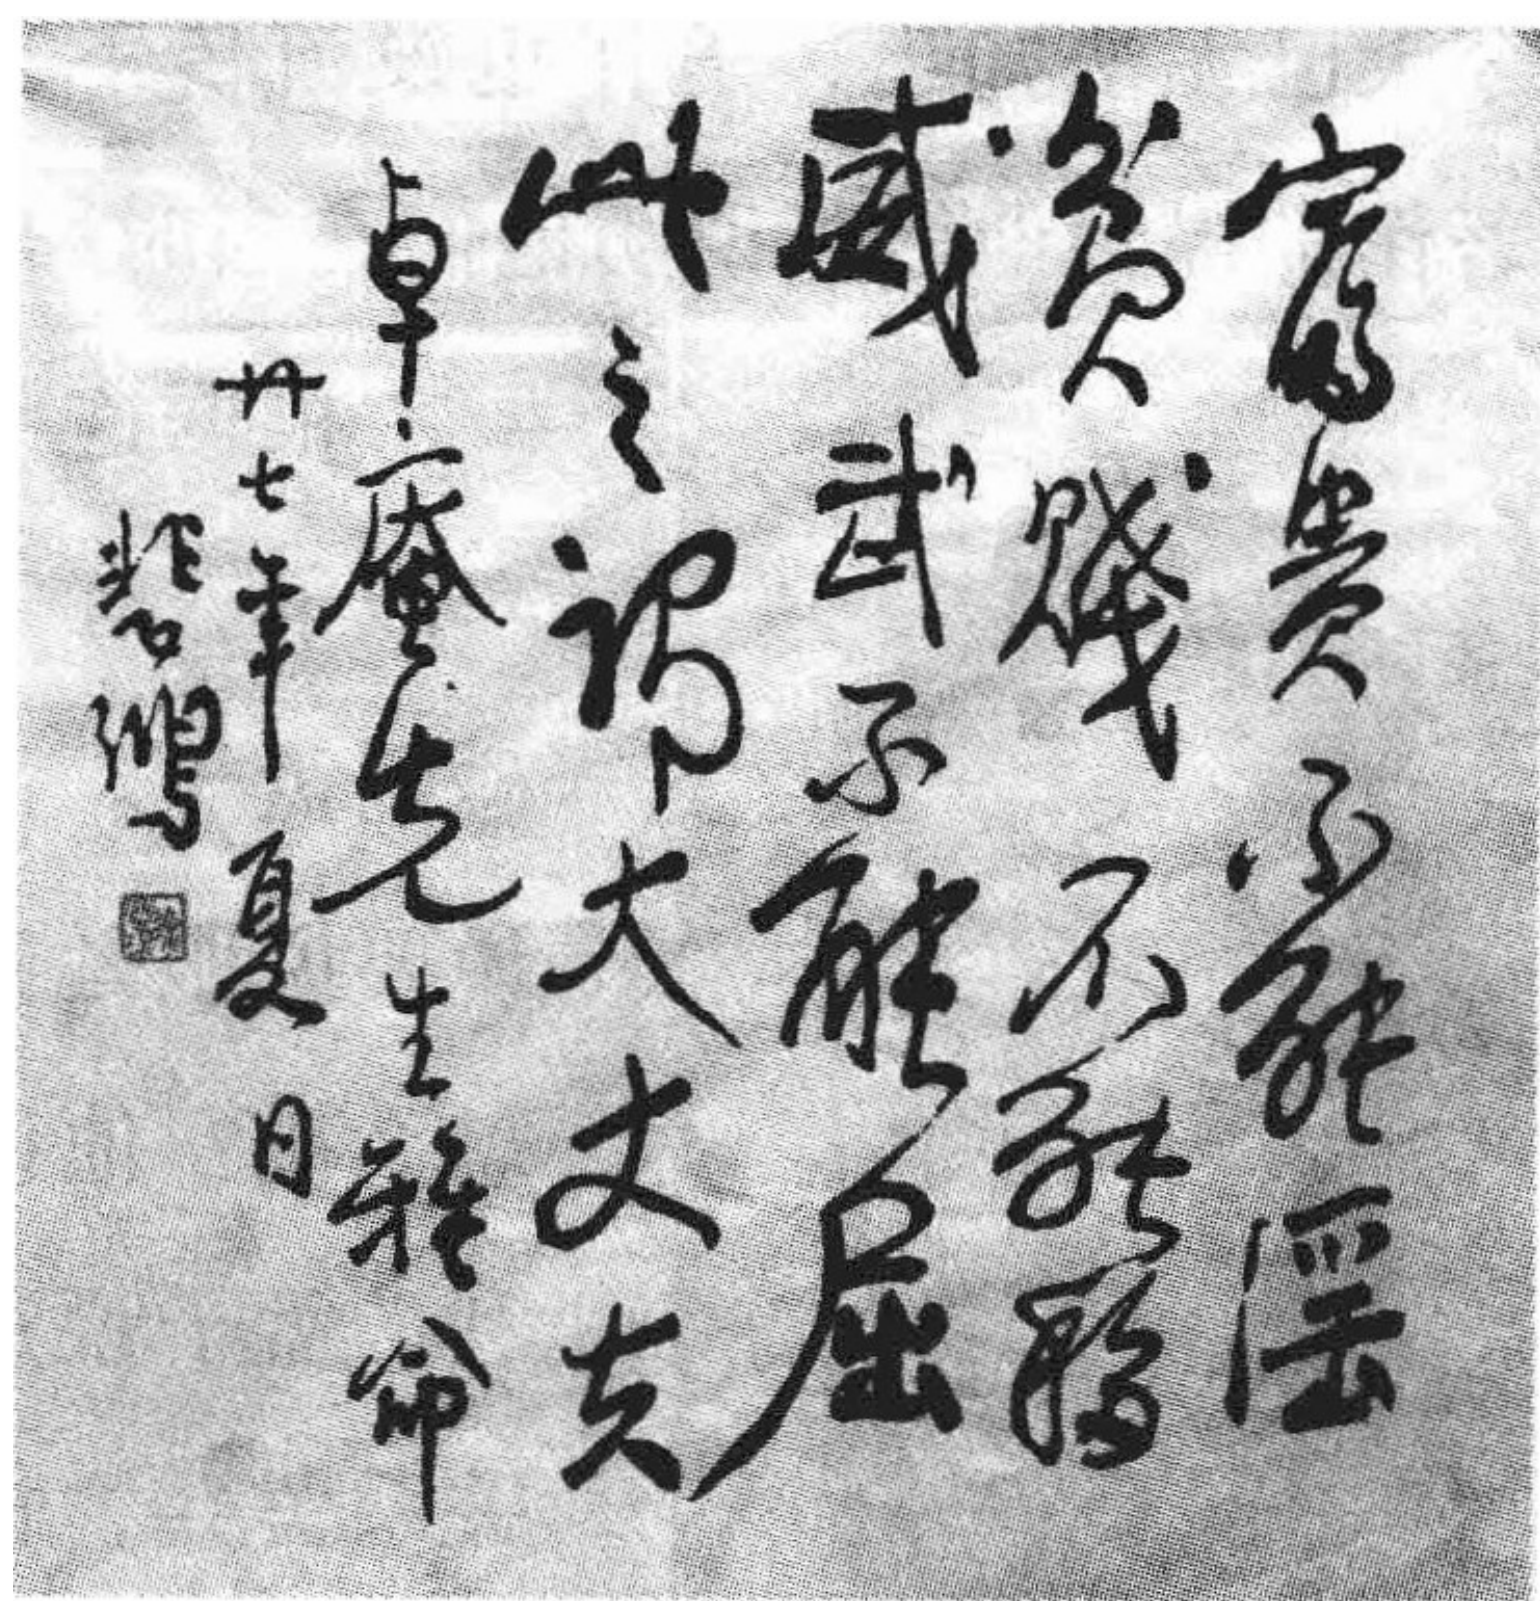 富貴不能淫
貧賤不能移
威武不能屈
此之謂大丈夫
卓庵先生雅命
廿七年夏日
悲鴻